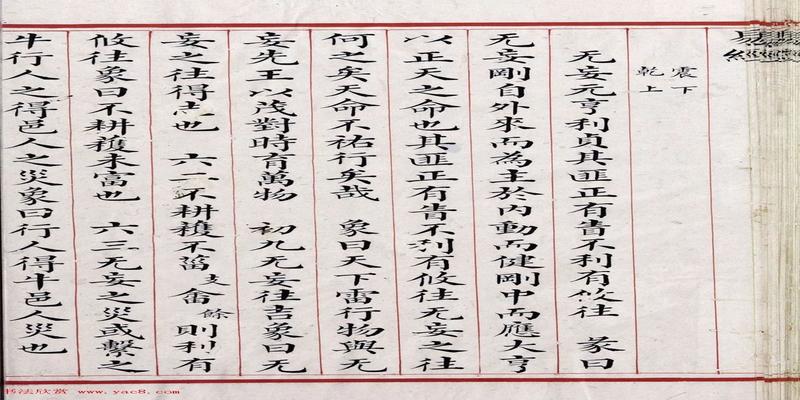 震下
乾上
无妄元亨利貞其匪正有眚不利有攸往 彖曰
无妄剛自外來而為主於内動而健剛中而應大亨
以正天之命也其匪正有眚不利有攸往无妄之往
何之矣天命不祐行矣哉 象曰天下雷行物與无
妄先王以茂對時育萬物 初九无妄往吉象曰无
妄之往得志也 六二不耕穫不菑支畬餘則利有
攸往象曰不耕穫未富也 六三无妄之災或繫之
牛行人之得邑人之災象曰行人得牛邑人災也
书法欣赏 www.yac8.com